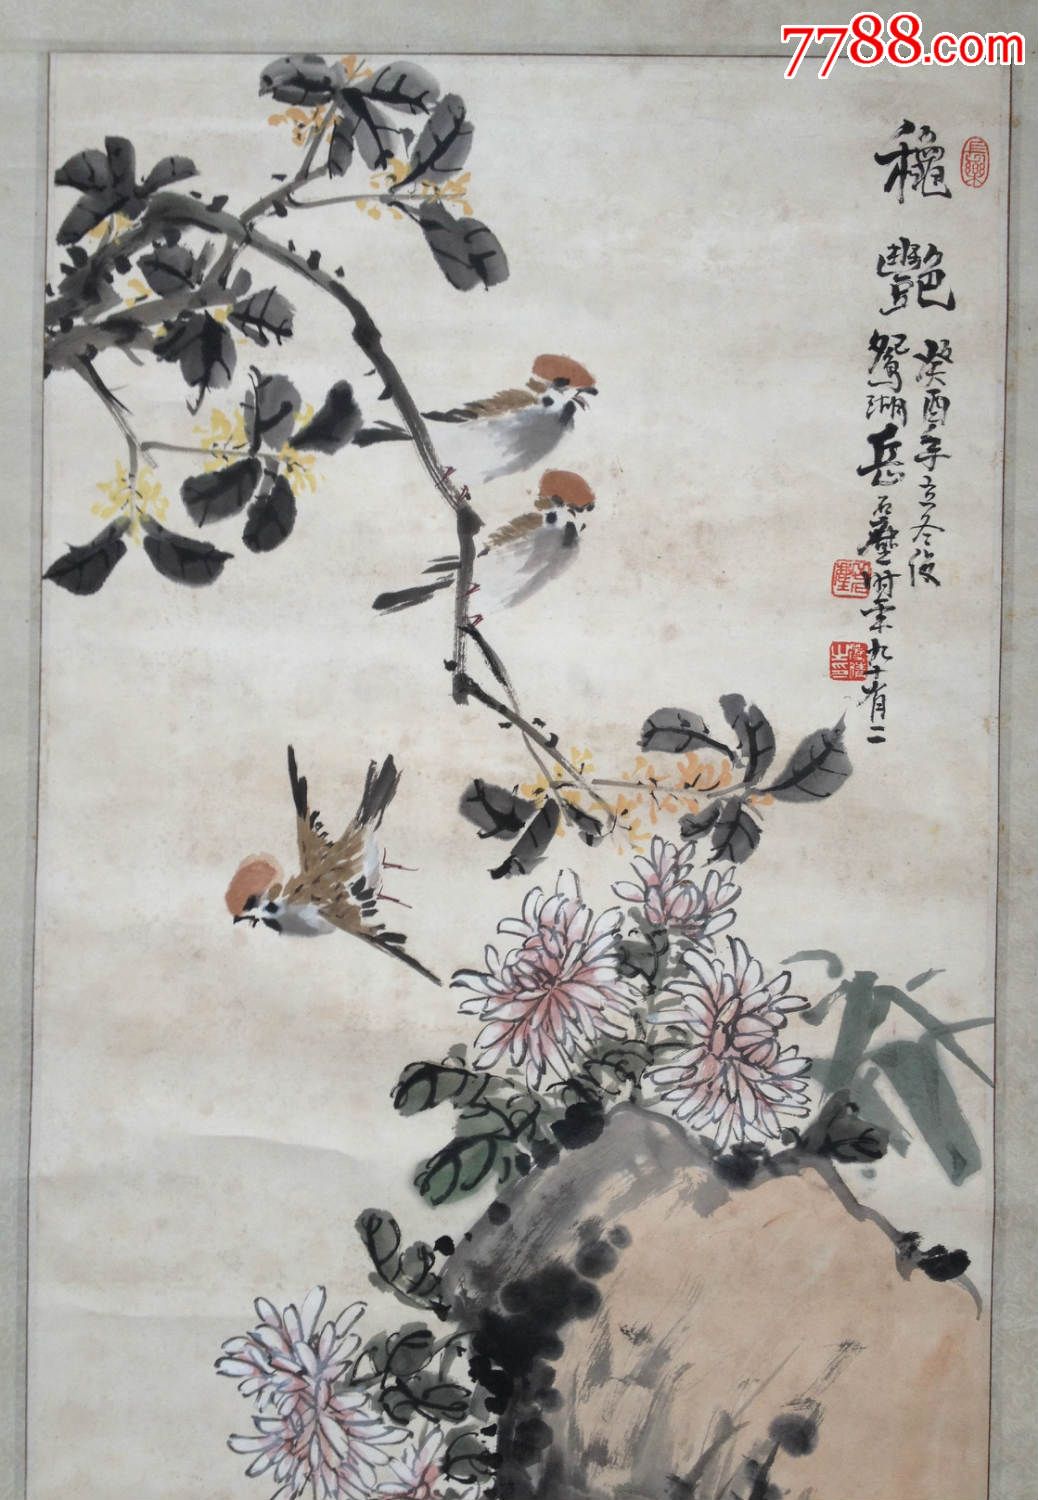 7788.com
龝
豔
癸酉年立冬後
鴛湖岳石塵時年九十有二
長樂
石塵